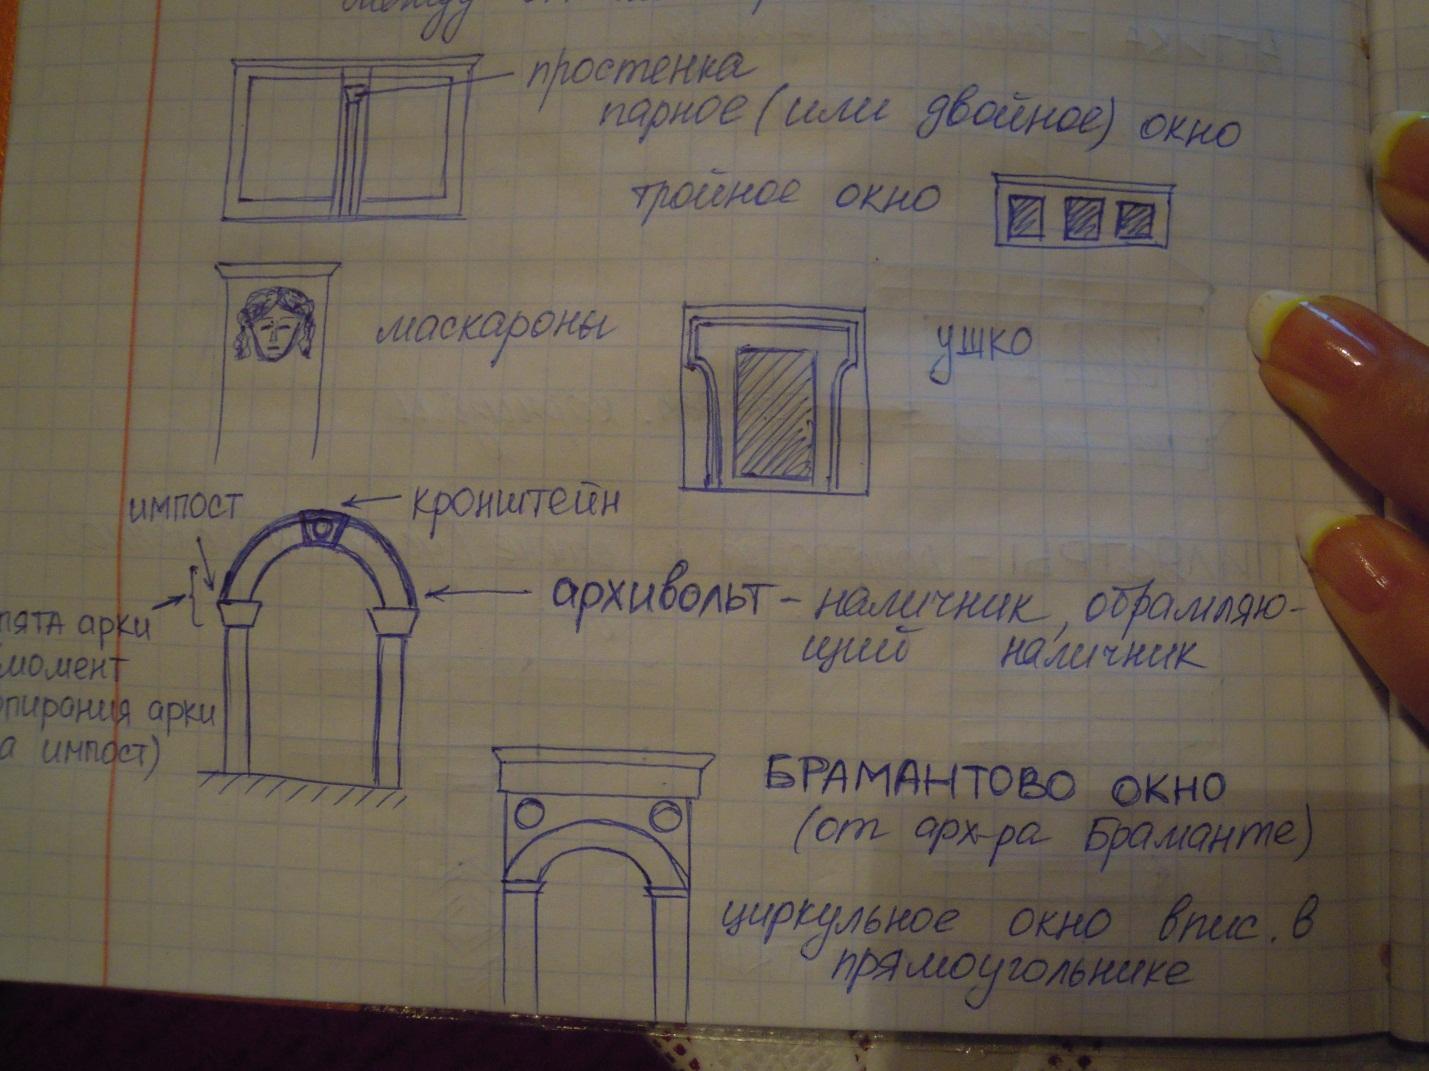 между
простенка
парное (или двойное) окно
тройное окно
маскароны
ушко
импост
кронштейн
архивольт - наличник, обрамляю-
щий наличник
пята арки
момент
опирания арки
а импост)
БРАМАНТОВО ОКНО
(от арх-ра Браманте)
циркульное окно впис. в
прямоугольнике